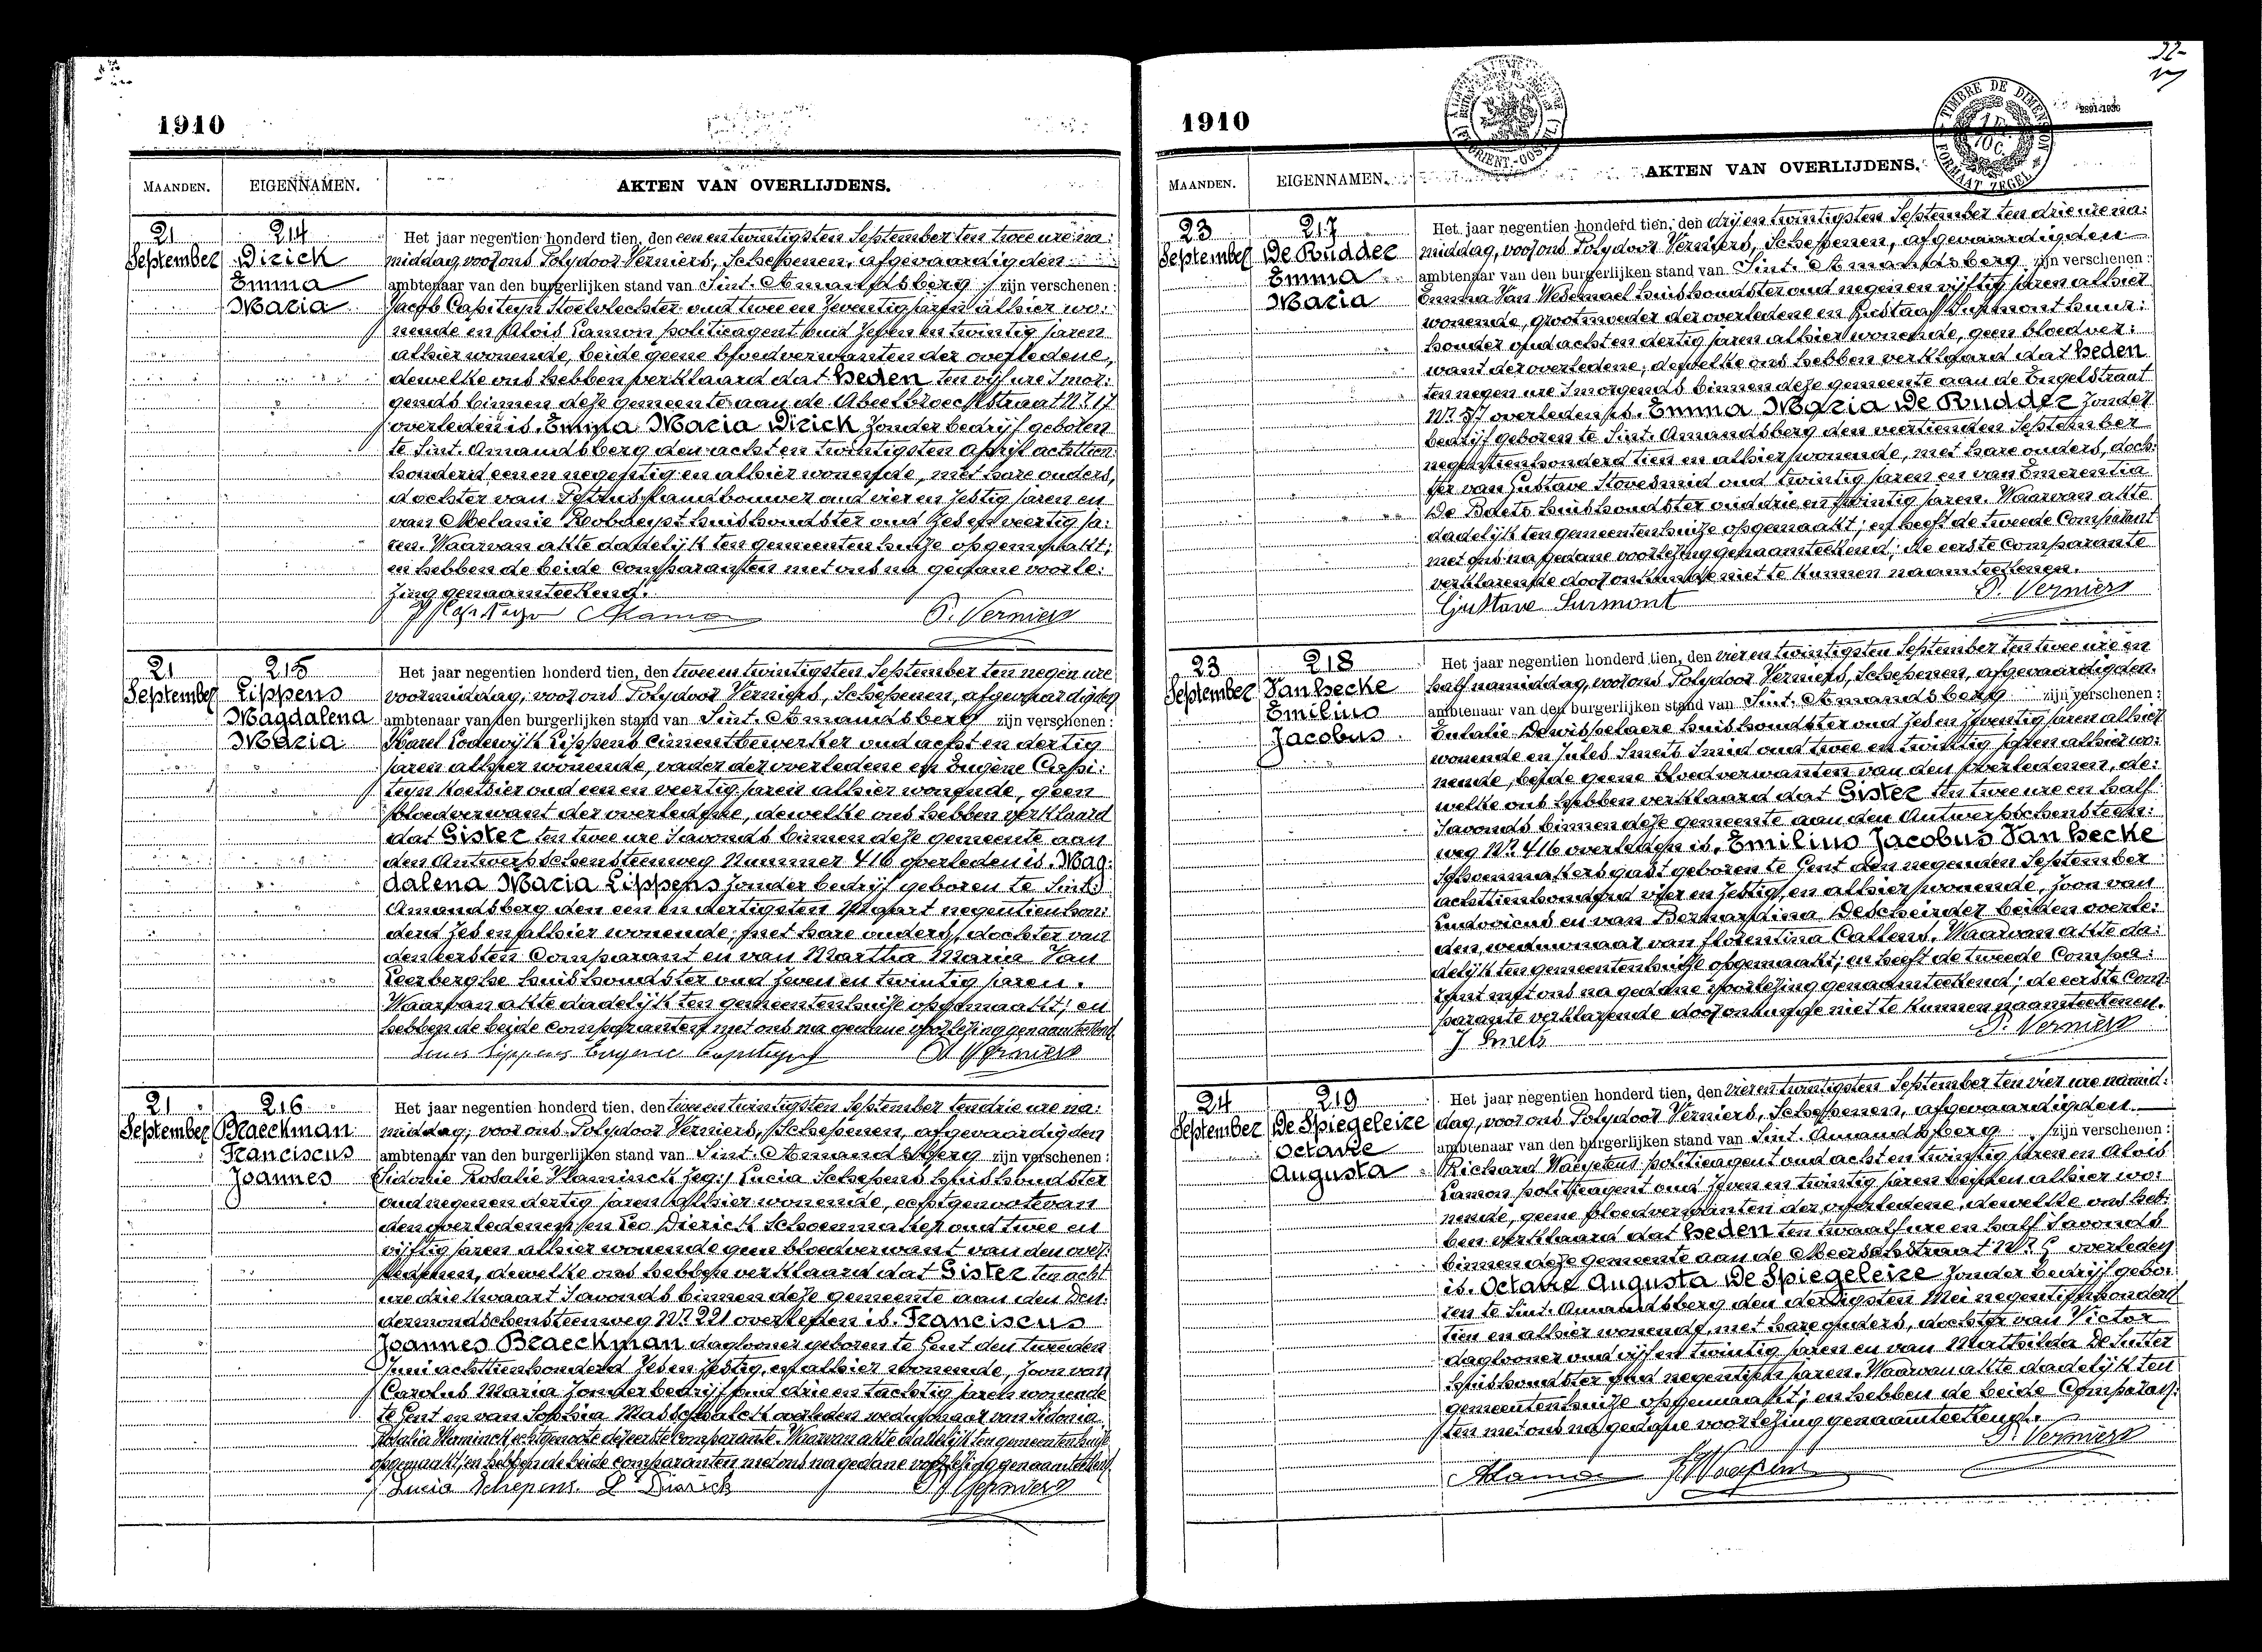 1910
MAANDEN. EIGENNAMEN. AKTEN VAN OVERLIJDENS.
21 September
214
Dirick
Emma
Maria
Het jaar negentien honderd tien, den een en twintigsten September ten twee ure na:
middag, voor ons Polydoor Verniers, Schepenen, afgevaardigden
ambtenaar van den burgerlijken stand van Sint-Amandsberg zijn verschenen:
Jacob Capiteyn Stoelvlechter oud twee en zeventig jaren alhier wo:
nende en Alois Lamon politieagent oud zeven en twintig jaren
alhier wonende, beide geene bloedverwanten der overledene,
dewelke ons hebben verklaard dat heden ten vijf ure s'mor:
gends binnen deze gemeente aan de Abeelbroeckstraat Nr 17
overleden is. Emma Maria Dirick zonder bedrijf geboren
te Sint-Amandsberg den acht en twintigsten April achttien
honderd een en negentig en alhier wonende, met hare ouders,
dochter van Petrus Landbouwer oud vier en zestig jaren en
van Melanie huishoudster oud zes en veertig ja:
ren. Waarvan akte dadelijk ten gemeentenhuize opgemaakt;
en hebben de beide Comparanten met ons na gedane voorle:
zing genaamteekend.
P. Verniers
21 September
215
Lippens
Magdalena
Maria
Het jaar negentien honderd tien, den twee en twintigsten September ten negen ure
voormiddag, voor ons Polydoor Verniers, Schepenen, afgevaardigden
ambtenaar van den burgerlijken stand van Sint-Amandsberg zijn verschenen:
Karel Lodewijk Lippens Cimentbewerker oud acht en dertig
jaren alhier wonende, vader der overledene en Eugene Capi:
teyn Koetsier oud een en veertig jaren alhier wonende, geen
bloedverwant der overledene, dewelke ons hebben verklaard
dat Gister ten twee ure s'avonds binnen deze gemeente aan
den Antwerpschensteenweg Nummer 416 overleden is. Mag:
dalena Maria Lippens zonder bedrijf geboren te Sint-
Amandsberg den een en dertigsten Maart negentien hon:
derd zes en alhier wonende, met hare ouders, dochter van
den eersten Comparant en van Martha Maria Van
Leerberghe huishoudster oud zeven en twintig jaren.
Waarvan akte dadelijk ten gemeentenhuize opgemaakt; en
hebben de beide comparanten met ons na gedane voorlezing genaamteekend.
Lippens Eugene Capiteyn P. Verniers
21 September
216
Braeckman
Franciscus
Joannes
Het jaar negentien honderd tien, den twee en twintigsten September ten drie ure na:
middag, voor ons Polydoor Verniers, Schepenen, afgevaardigden
ambtenaar van den burgerlijken stand van Sint-Amandsberg zijn verschenen:
Sidonie Rosalie Vlaminck zeg: Lucia Schepens huishoudster
oud negen en dertig jaren alhier wonende, echtgenoote van
den overledenen en Leo Dierick Schoenmaker oud twee en
vijftig jaren alhier wonende geen bloedverwant van den over:
ledenen, dewelke ons hebben verklaard dat Gister ten acht
ure drie kwaart s'avonds binnen deze gemeente aan den Den:
dermondschensteenweg Nr 221 overleden is. Franciscus
Joannes Braeckman daglooner geboren te Gent den tweeden
Juni achttienhonderd zes en zestig, en alhier wonende, zoon van
Carolus Maria zonder bedrijf oud drie en tachtig jaren wonende
te Gent en van Sophia Masschalck overleden van Sidonia
Rosalia Vlaminck echtgenoote de eerste Comparante. Waarvan akte dadelijk ten gemeentenhuize
opgemaakt; en hebben de beide comparanten met ons na gedane voorlezing genaamteekend.
Lucia Schepens L Dierick P. Verniers
1910
MAANDEN. EIGENNAMEN. AKTEN VAN OVERLIJDENS.
TIMBRE DE DIMENSION
FORMAAT ZEGEL
23 September
217
De Rudder
Emma
Maria
Het jaar negentien honderd tien, den drij en twintigsten September ten drie ure na:
middag, voor ons Polydoor Verniers, Schepenen, afgevaardigden
ambtenaar van den burgerlijken stand van Sint-Amandsberg zijn verschenen:
Emma Van Wesemael huishoudster oud negen en vijftig jaren alhier
wonende, grootmoeder der overledene en Gustaaf Surmont huur:
houder oud acht en dertig jaren alhier wonende, geen bloedver:
want der overledene, dewelke ons hebben verklaard dat heden
ten negen ure s'morgends binnen deze gemeente aan de Engelstraat
Nr 57 overleden is. Emma Maria De Rudder zonder
bedrijf geboren te Sint-Amandsberg den veertienden September
negentienhonderd tien en alhier wonende, met hare ouders, doch:
ter van Gustave Stovesmid oud twintig jaren en van Emerentia
De Baets huishoudster oud drie en twintig jaren. Waarvan akte
dadelijk ten gemeentenhuize opgemaakt; en heeft de tweede Comparant
met ons na gedane voorlezing genaamteekend; de eerste Comparante
verklarende door onkunde niet te kunnen naamteekenen.
Gustave Surmont P. Verniers
23 September
218
Van hecke
Emilius
Jacobus
Het jaar negentien honderd tien, den vier en twintigsten September ten twee ure en
half namiddag, voor ons Polydoor Verniers, Schepenen, afgevaardigden
ambtenaar van den burgerlijken stand van Sint-Amandsberg zijn verschenen:
Eulalie Dewispelaere huishoudster oud zes en zeventig jaren alhier
wonende en Jules Smets Smid oud twee en twintig jaren alhier wo:
nende, beide geene bloedverwanten van den overledenen, de:
welke ons hebben verklaard dat Gister ten twee ure en half
s'avonds binnen deze gemeente aan den Antwerpschensteen:
weg Nr 416 overleden is. Emilius Jacobus Van hecke
Schoenmakersgast geboren te Gent den negenden September
achttienhonderd vier en zestig, en alhier wonende, zoon van
Ludovicus en van Bernardina Descheirder beiden overle:
den, weduwnaar van Florentina Callens. Waarvan akte da:
delijk ten gemeentenhuize opgemaakt; en heeft de tweede Compa:
rant met ons na gedane voorlezing genaamteekend; de eerste Com:
parante verklarende door onkunde niet te kunnen naamteekenen.
J Smets P. Verniers
24 September
219
De Spiegeleire
Octavie
Augusta
Het jaar negentien honderd tien, den vier en twintigsten September ten vier ure namid:
dag, voor ons Polydoor Verniers, Schepenen, afgevaardigden
ambtenaar van den burgerlijken stand van Sint-Amandsberg zijn verschenen:
Richard Waeytens politieagent oud acht en twintig jaren en Alois
Lamon politieagent oud zeven en twintig jaren beiden alhier wo:
nende, geene bloedverwanten der overledene, dewelke ons heb:
ben verklaard dat heden ten twaalf ure en half s'avonds
binnen deze gemeente aan de Meerschstraat Nr overleden
is. Octavie Augusta De Spiegeleire zonder bedrijf gebo:
ren te Sint-Amandsberg den dertigsten Mei negentienhonderd
tien en alhier wonende, met hare ouders, dochter van Victor
daglooner oud vijf en twintig jaren en van Mathilda De Sutter
huishoudster oud negentien jaren. Waarvan akte dadelijk ten
gemeentenhuize opgemaakt; en hebben de beide Comparan:
ten met ons na gedane voorlezing genaamteekend.
P. Verniers